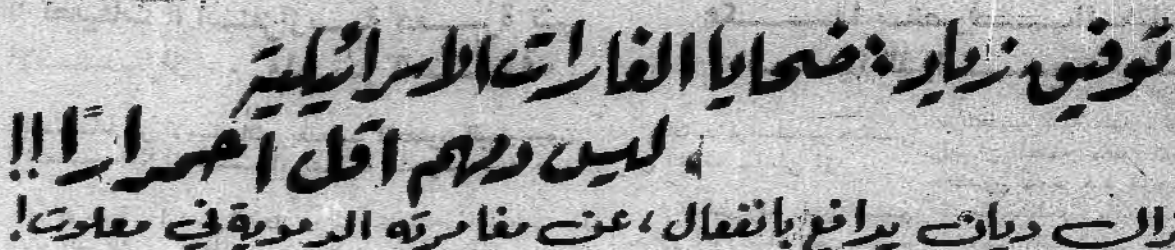 توفيق زياد: ضحايا الغارات الاسرائيلية
ليس دمهم اقل احمرارًا!!
ديان يدافع بانفعال، عن مغامرته الدموية في معلوت!